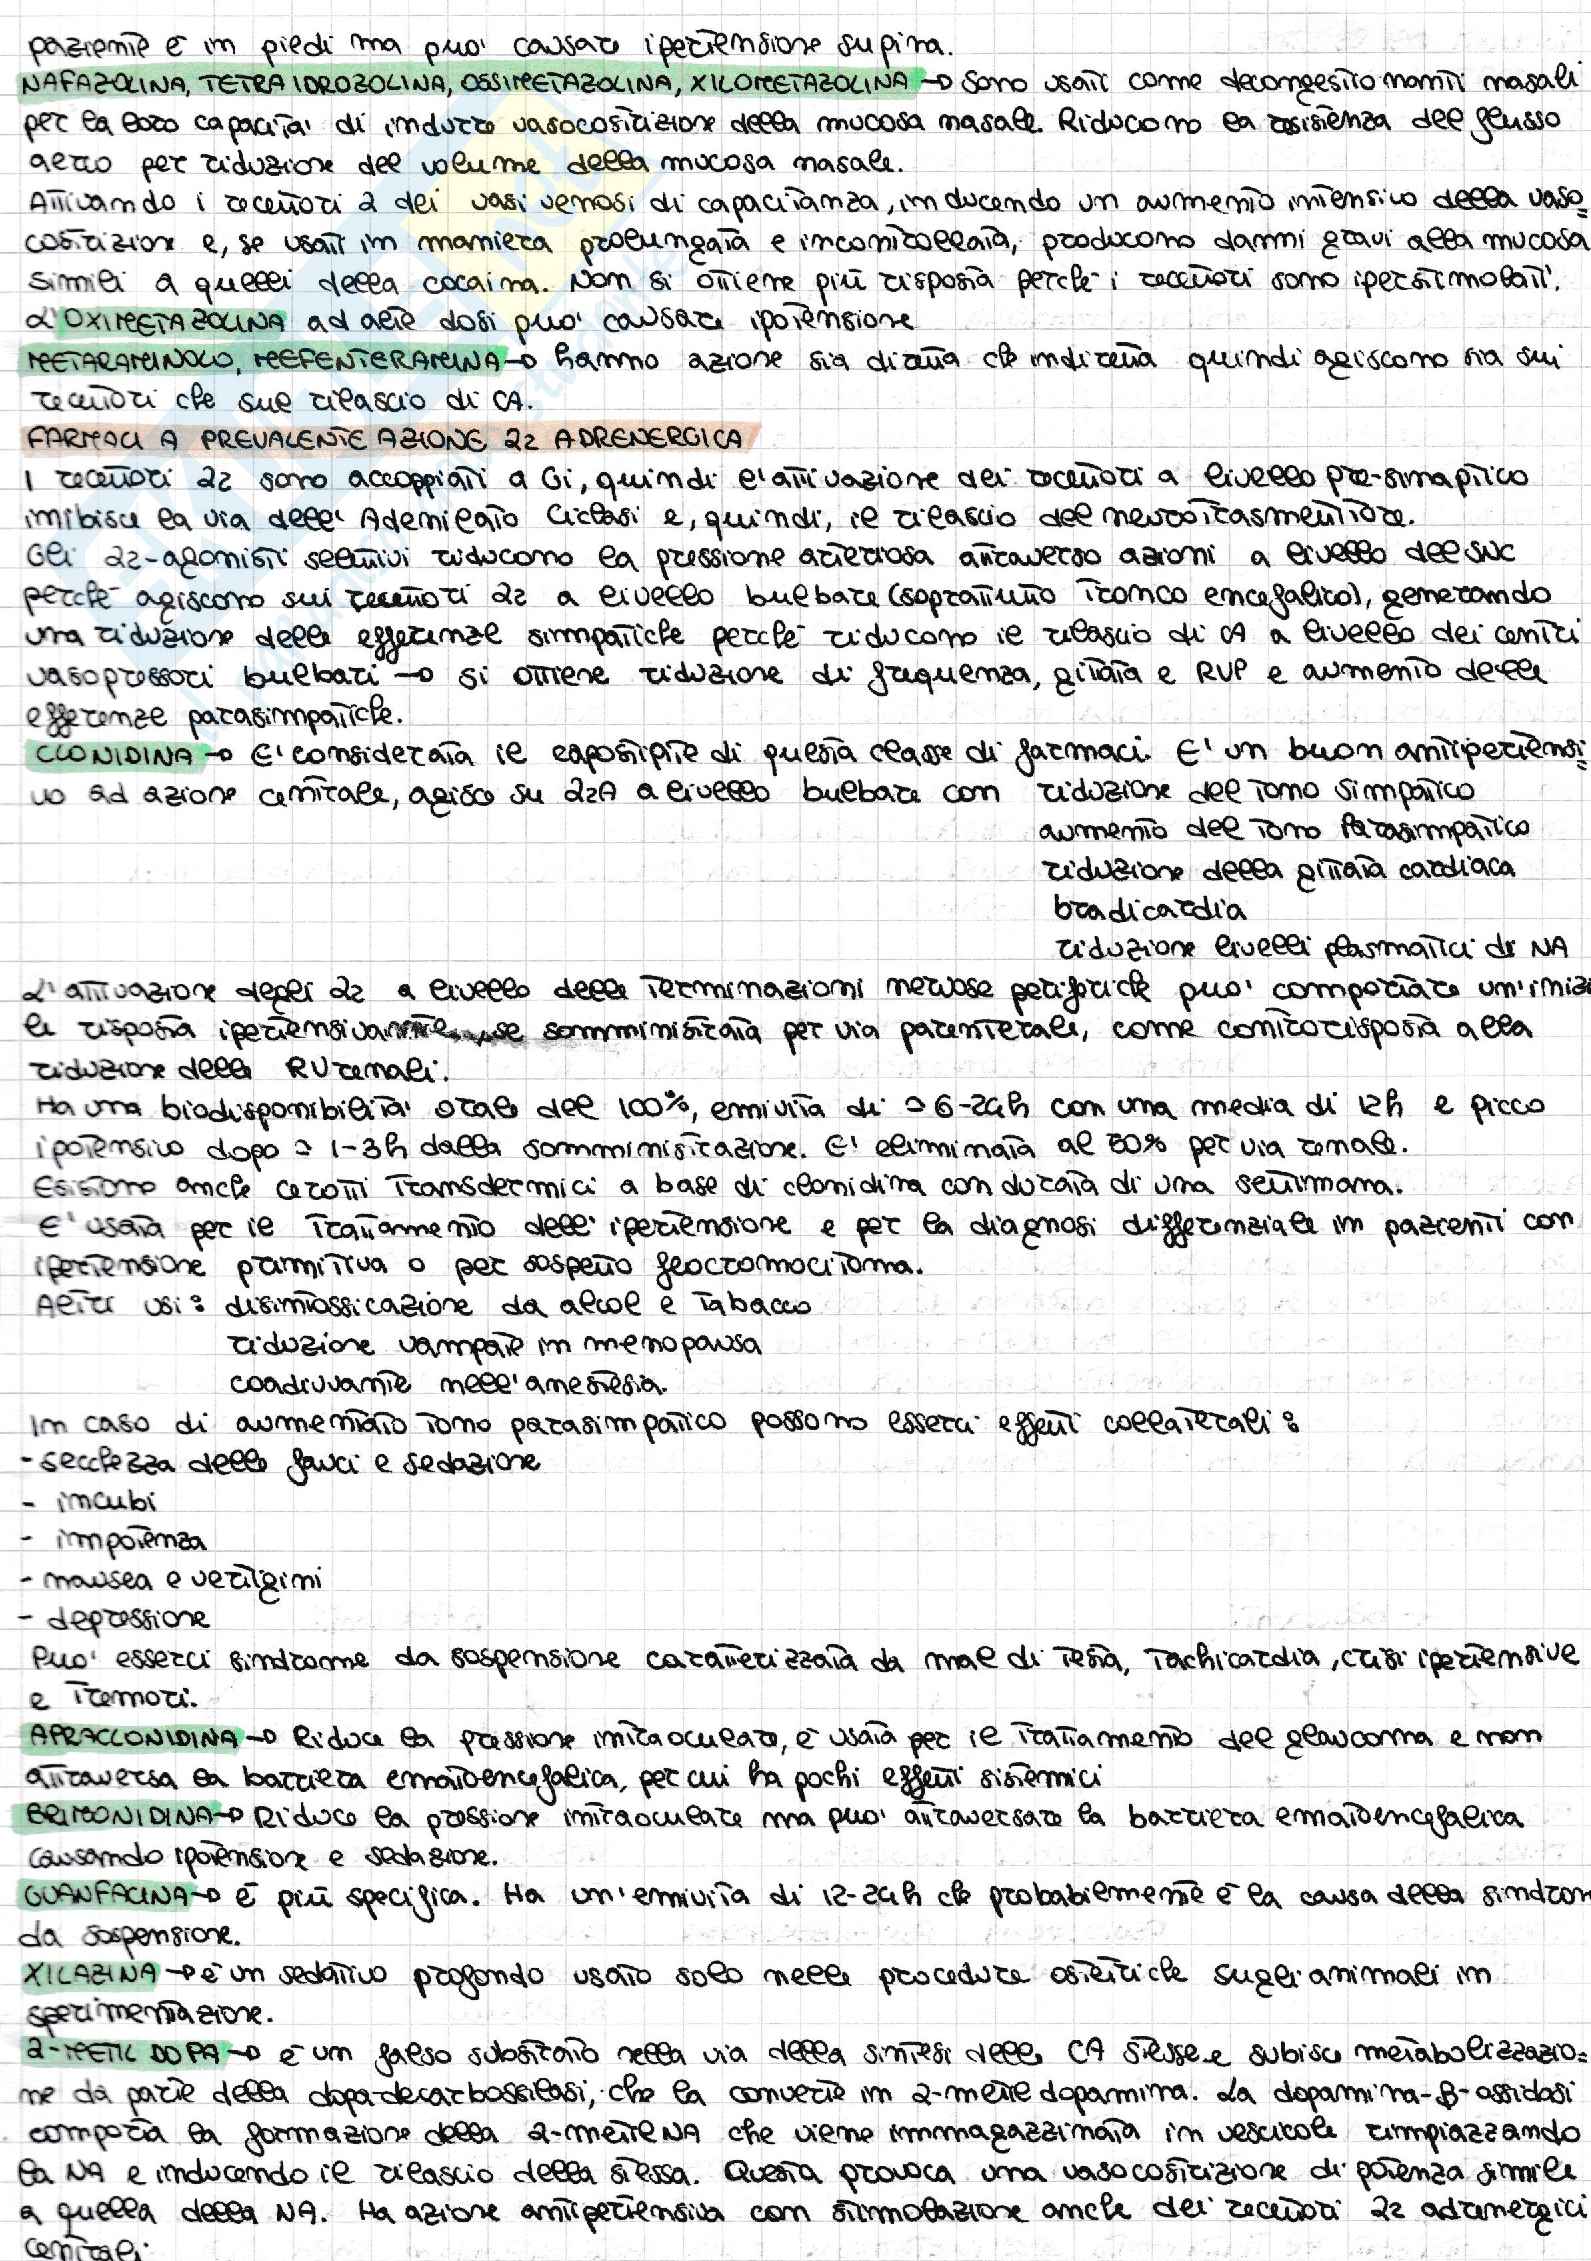 paziente è in piedi ma puo' causare ipertensione supina.
NAFAZOLINA, TETRAIDROZOLINA, OSSIMETAZOLINA, XILOMETAZOLINA → Sono usati come decongestionanti nasali
per la loro capacità di indurre vasocostrizione della mucosa nasale. Riducono la resistenza del flusso
aereo per riduzione del volume della mucosa nasale.
Attivando i recettori α dei vasi venosi di capacitanza, inducendo un aumento intensivo della vaso=
costrizione e, se usati in maniera prolungata e incontrollata, producono danni gravi alla mucosa
simili a quelli della cocaina. Non si ottiene più risposta perché i recettori sono iperstimolati.
L'OXIMETAZOLINA ad alte dosi puo' causare ipotensione
METARAMINOLO, MEFENTERAMINA → hanno azione sia diretta che indiretta quindi agiscono sia sui
recettori che sul rilascio di CA.
FARMACI A PREVALENTE AZIONE α2 ADRENERGICA
I recettori α2 sono accoppiati a Gi, quindi l'attivazione dei recettori a livello pre-sinaptico
inibisce la via dell' Adenilato Ciclasi e, quindi, il rilascio del neurotrasmettitore.
Gli α2-agonisti selettivi riducono la pressione arteriosa attraverso azioni a livello del SNC
perché agiscono sui recettori α2 a livello bulbare (soprattutto tronco encefalico), generando
una riduzione delle efferenze simpatiche perché riducono il rilascio di CA a livello dei centri
vasopressori bulbari → si ottiene riduzione di frequenza, gittata e RVP e aumento delle
efferenze parasimpatiche.
CLONIDINA → E' considerata il capostipite di questa classe di farmaci. E' un buon antipertensi=
vo ad azione centrale, agisce su α2A a livello bulbare con riduzione del tono simpatico
aumento del tono Parasimpatico
riduzione della gittata cardiaca
bradicardia
riduzione livelli plasmatici di NA
L'attivazione degli α2 a livello delle terminazioni nervose periferiche puo' comportare un'inizi
le risposta ipertensiva se somministrata per via parenterale, come controrisposta alla
riduzione delle RV renali.
Ha una biodisponibilità orale del 100%, emivita di ≃ 6-24h con una media di 12h e picco
ipotensivo dopo ≃ 1-3h dalla somministrazione. E' eliminata al 50% per via renale.
Esistono anche cerotti transdermici a base di clonidina con durata di una settimana.
E' usata per il trattamento dell' ipertensione e per la diagnosi differenziale in pazienti con
ipertensione primitiva o per sospetto feocromocitoma.
Altri usi: disintossicazione da alcol e tabacco
riduzione vampate in menopausa
coadiuvante nell'anestesia.
In caso di aumentato tono parasimpatico possono esserci effetti collaterali:
- secchezza delle fauci e sedazione
- incubi
- impotenza
- nausea e vertigini
- depressione
Puo' esserci sindrome da sospensione caratterizzata da mal di testa, tachicardia, crisi ipertensive
e tremori.
APRACLONIDINA → Riduce la pressione intraoculare, è usata per il trattamento del glaucoma e non
attraversa la barriera ematoencefalica, per cui ha pochi effetti sistemici
BRIMONIDINA → Riduce la pressione intraoculare ma puo' attraversare la barriera ematoencefalica
causando ipotensione e sedazione.
GUANFACINA → è più specifica. Ha un'emivita di 12-24h che probabilmente è la causa della sindrom
da sospensione.
XILAZINA → è un sedativo profondo usato solo nelle procedure ostetriche sugli animali in
sperimentazione.
α-METIL DOPA → è un falso substrato nella via della sintesi delle CA stesse e subisce metabolizzazio=
ne da parte della dopa-decarbossilasi, che la converte in α-metildopamina. La dopamina-β-ossidasi
comporta la formazione della α-metilNA che viene immagazzinata in vescicole rimpiazzando
la NA e inducendo il rilascio della stessa. Questa provoca una vasocostrizione di potenza simile
a quella della NA. Ha azione antipertensiva con stimolazione anche dei recettori α2 adrenergici
centrali.